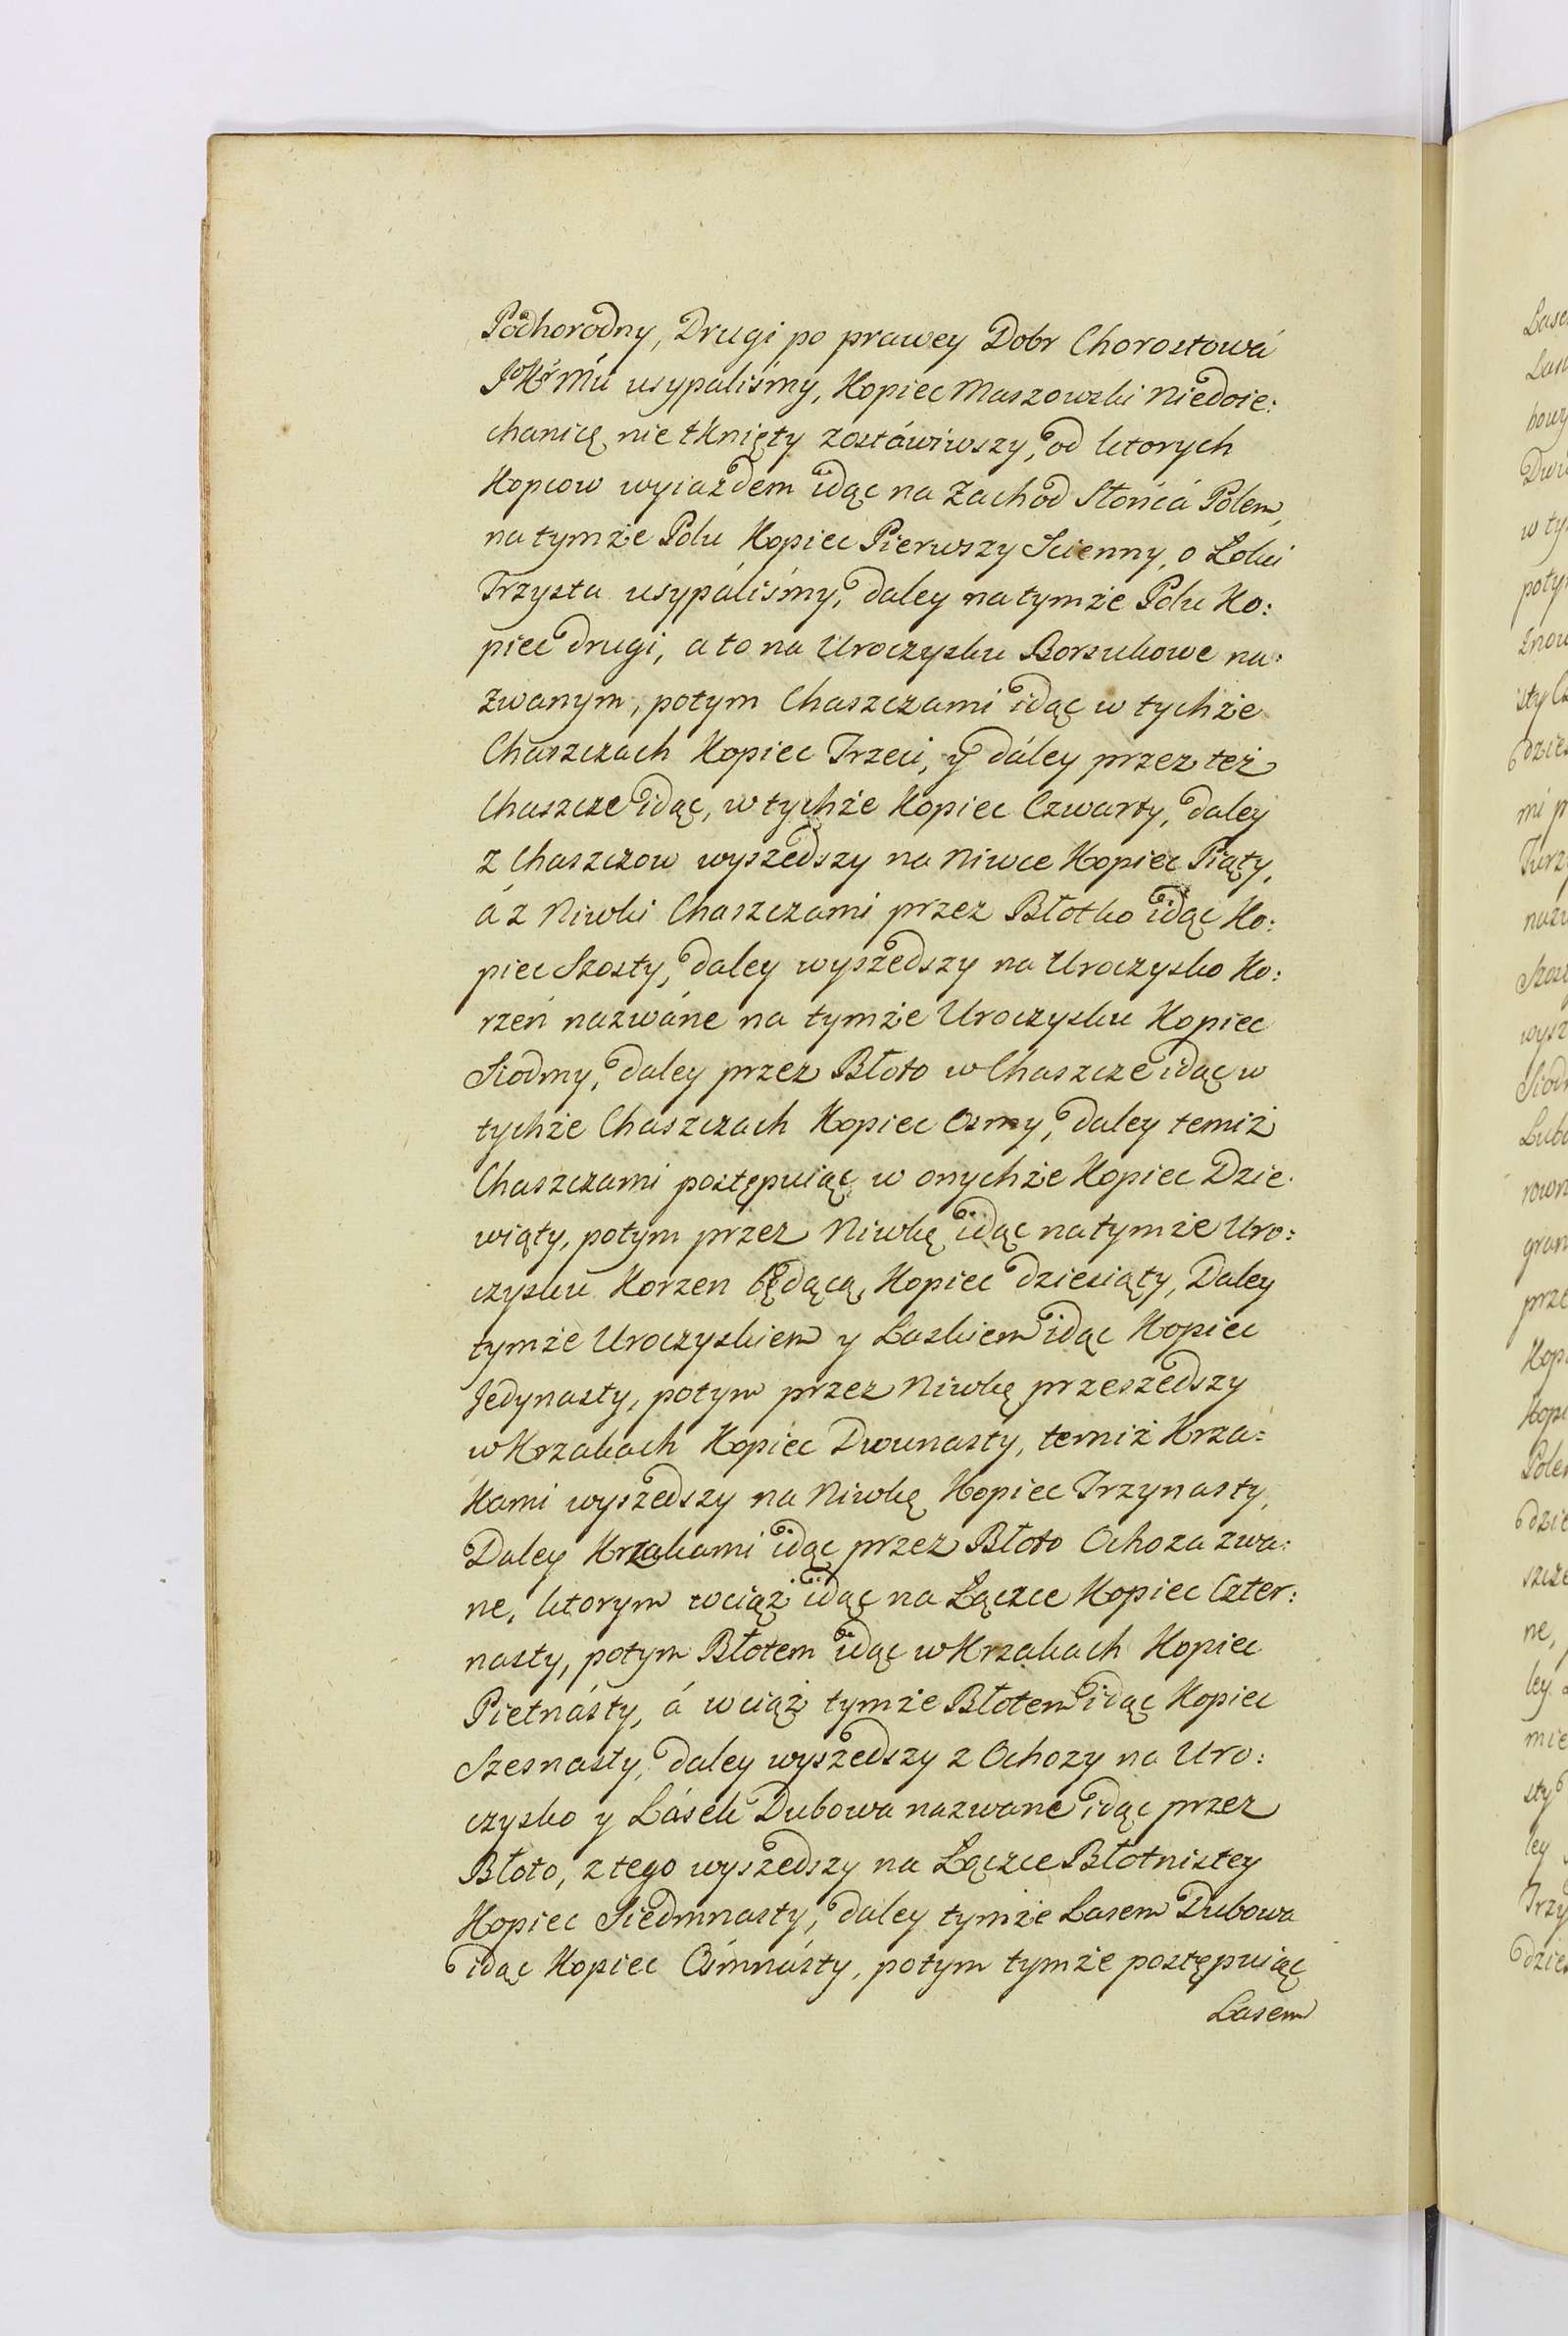 Podhorodny, Drugi po prawey Dobr Chorostowá
usypaliśmy, Kopiec Maszowski Niedoie:
chanicę nie tknięty zostáwiwszy, od ktorych
Kopcow wyiazdem idąc na Zachod Słońcá Polem,
na tymże Polu Kopiec Pierwszy Scienny, o Łokci
Trzysta usypáliśmy, daley na tymże Polu Ko:
piec drugi, a to na Uroczysku Borsukowe na:
zwanym, potym Chaszczami idąc w tychże
Chaszczach Kopiec Trzeci, y dáley przez też
Chaszcze idąc, w tychże Kopiec Czwarty, daley
z Chaszczow wyszedszy na Niwce Kopiec Piąty,
á z Niwki Chaszczami przez Błotko idąc Ko:
piec Szosty, daley wyszedszy na Uroczysko Ko:
rzeń nazwáne na tymże Uroczysku Kopiec
Siodmy, daley przez Błoto w Chaszcze idąc w
tychże Chaszczach Kopiec Osmy, daley temiż
Chaszczami postępuiąc w onychże Kopiec Dzie:
wiąty, potym przez Niwkę idąc na tymże Uro:
czysku Korzen będącą, Kopiec dziesiąty, Daley
tymże Uroczyskiem y Laskiem idąc Kopiec
Jedynasty, potym przez Niwkę przeszedszy
w Krzakach Kopiec Dwunasty, temiż Krza:
kami wyszedszy na Niwkę Kopiec Trzynasty,
Daley Krzakami idąc przez Błoto Ochoza zwa:
ne, ktorym wciąż idąc na Łączce Kopiec Czter:
nasty, potym Błotem idąc w Krzakach Kopiec
Pietnásty, á wciąż tymże Błotem idąc Kopiec
Szesnasty, daley wyszedszy z Ochozy na Uro:
czysko y Lásek Dubowa nazwane idąc przez
Błoto, z tego wyszedszy na Łączce Błotnistey
Kopiec Siedmnasty, daley tymże Lasem Dubowa
idąc Kopiec Ośmnásty, potym tymże postępuiąc
Lasem